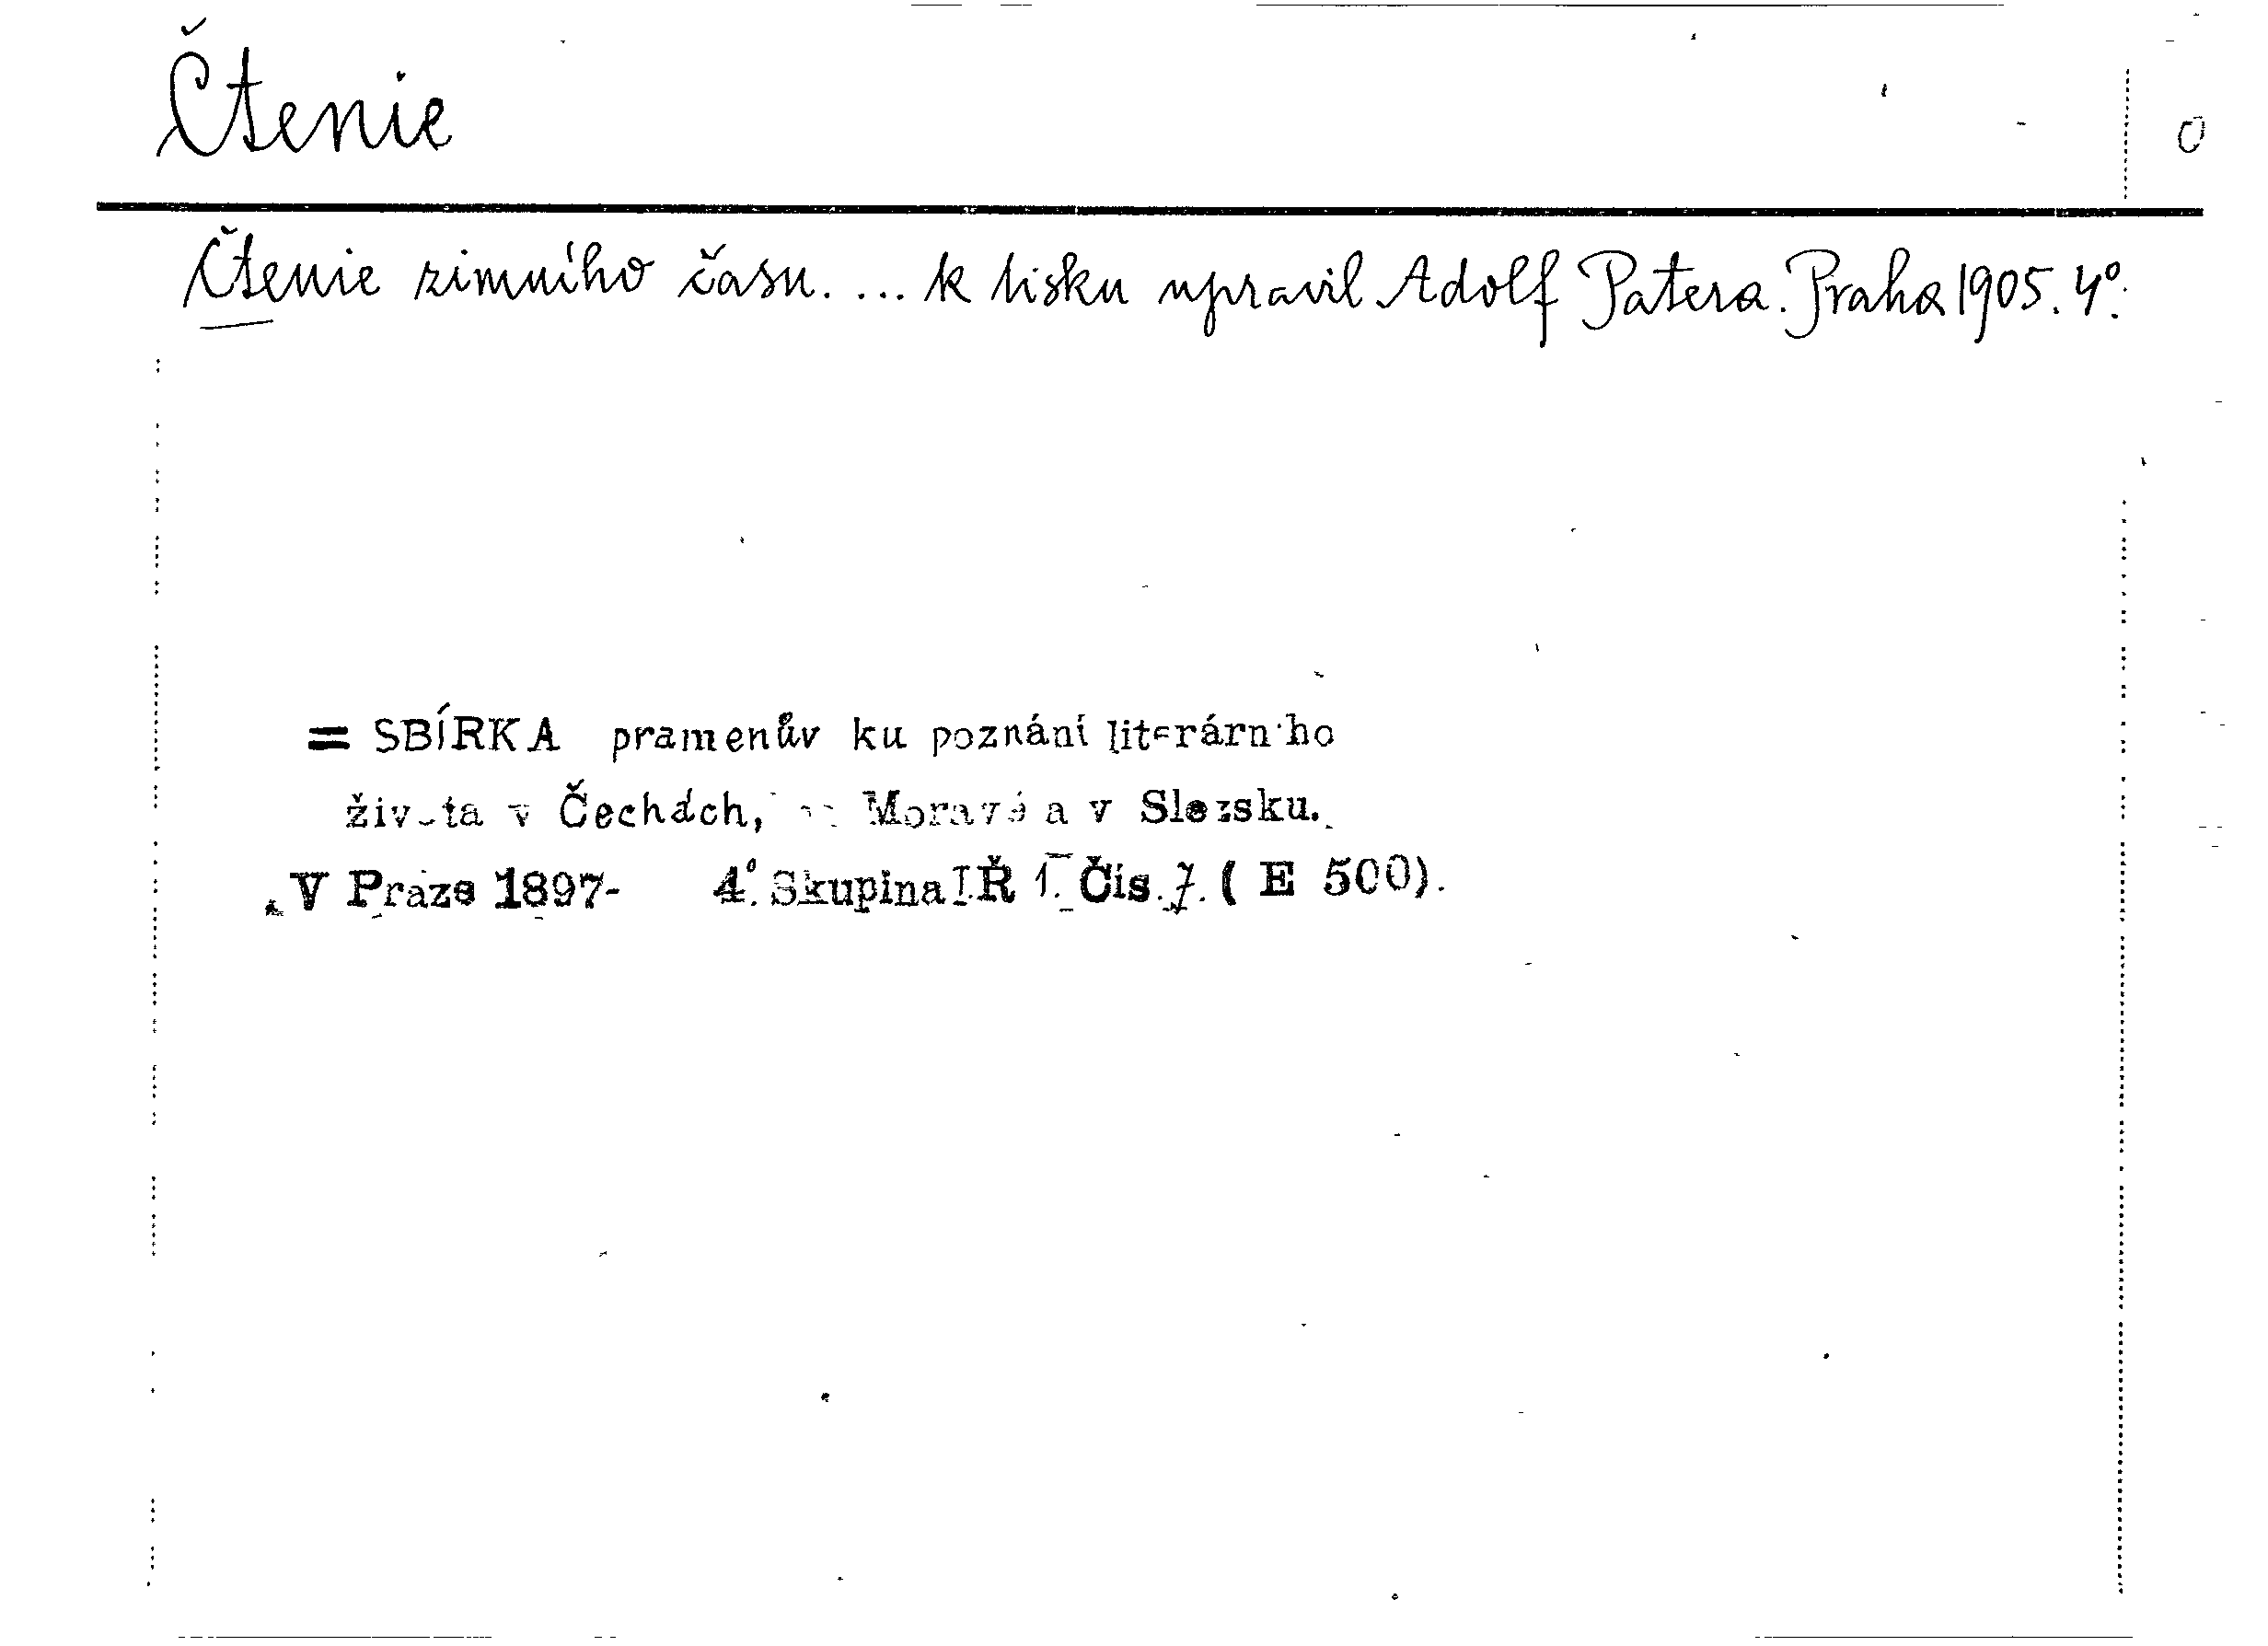 Čtenie
0
Čtenie zimního času. ... k tisku upravil Adolf Patera. Praha 1905. 4°.
= SBÍRKA pramenův ku poznání literárního
života v Čechách, na Moravě a v Slezsku.
V Praze 1897- 4°. Skupina I. Ř 1. Čís. 7. ( E 500).